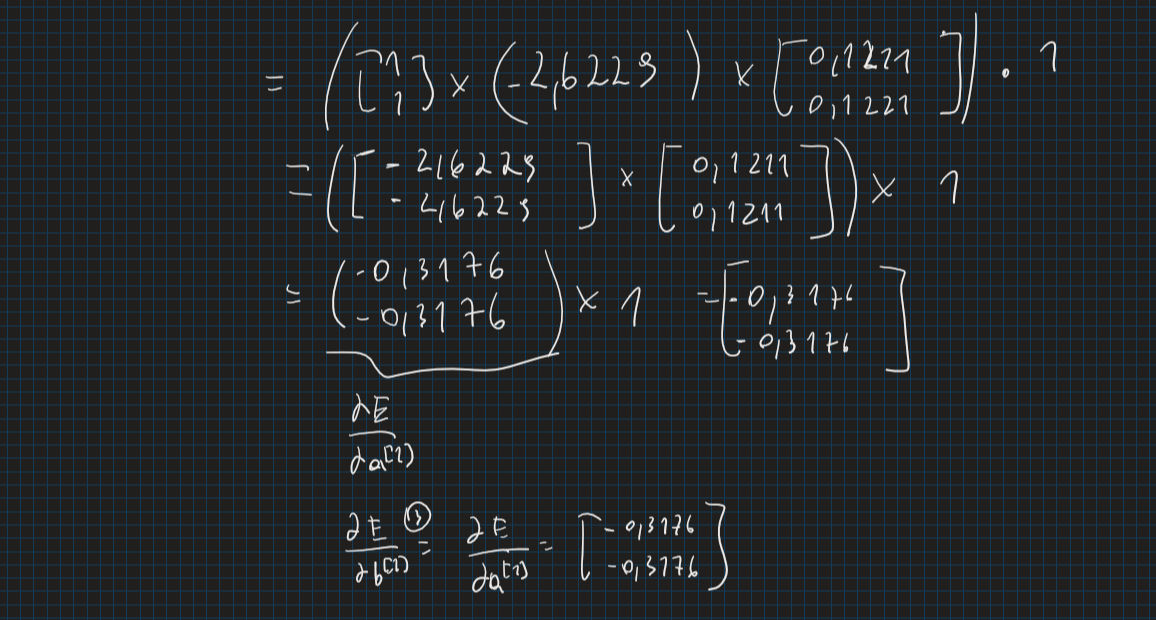 = ([1 1] × (-2,6229) × [0,1211 0,1221]) . 1
= ([-2,6229 -2,6229] × [0,1211 0,1211]) × 1
= (-0,3176 -0,3176) × 1 = [-0,3176 -0,3176]
∂E/∂a[1]
∂E/∂b[1] (1)= ∂E/∂a[1] = [-0,3176 -0,3176]